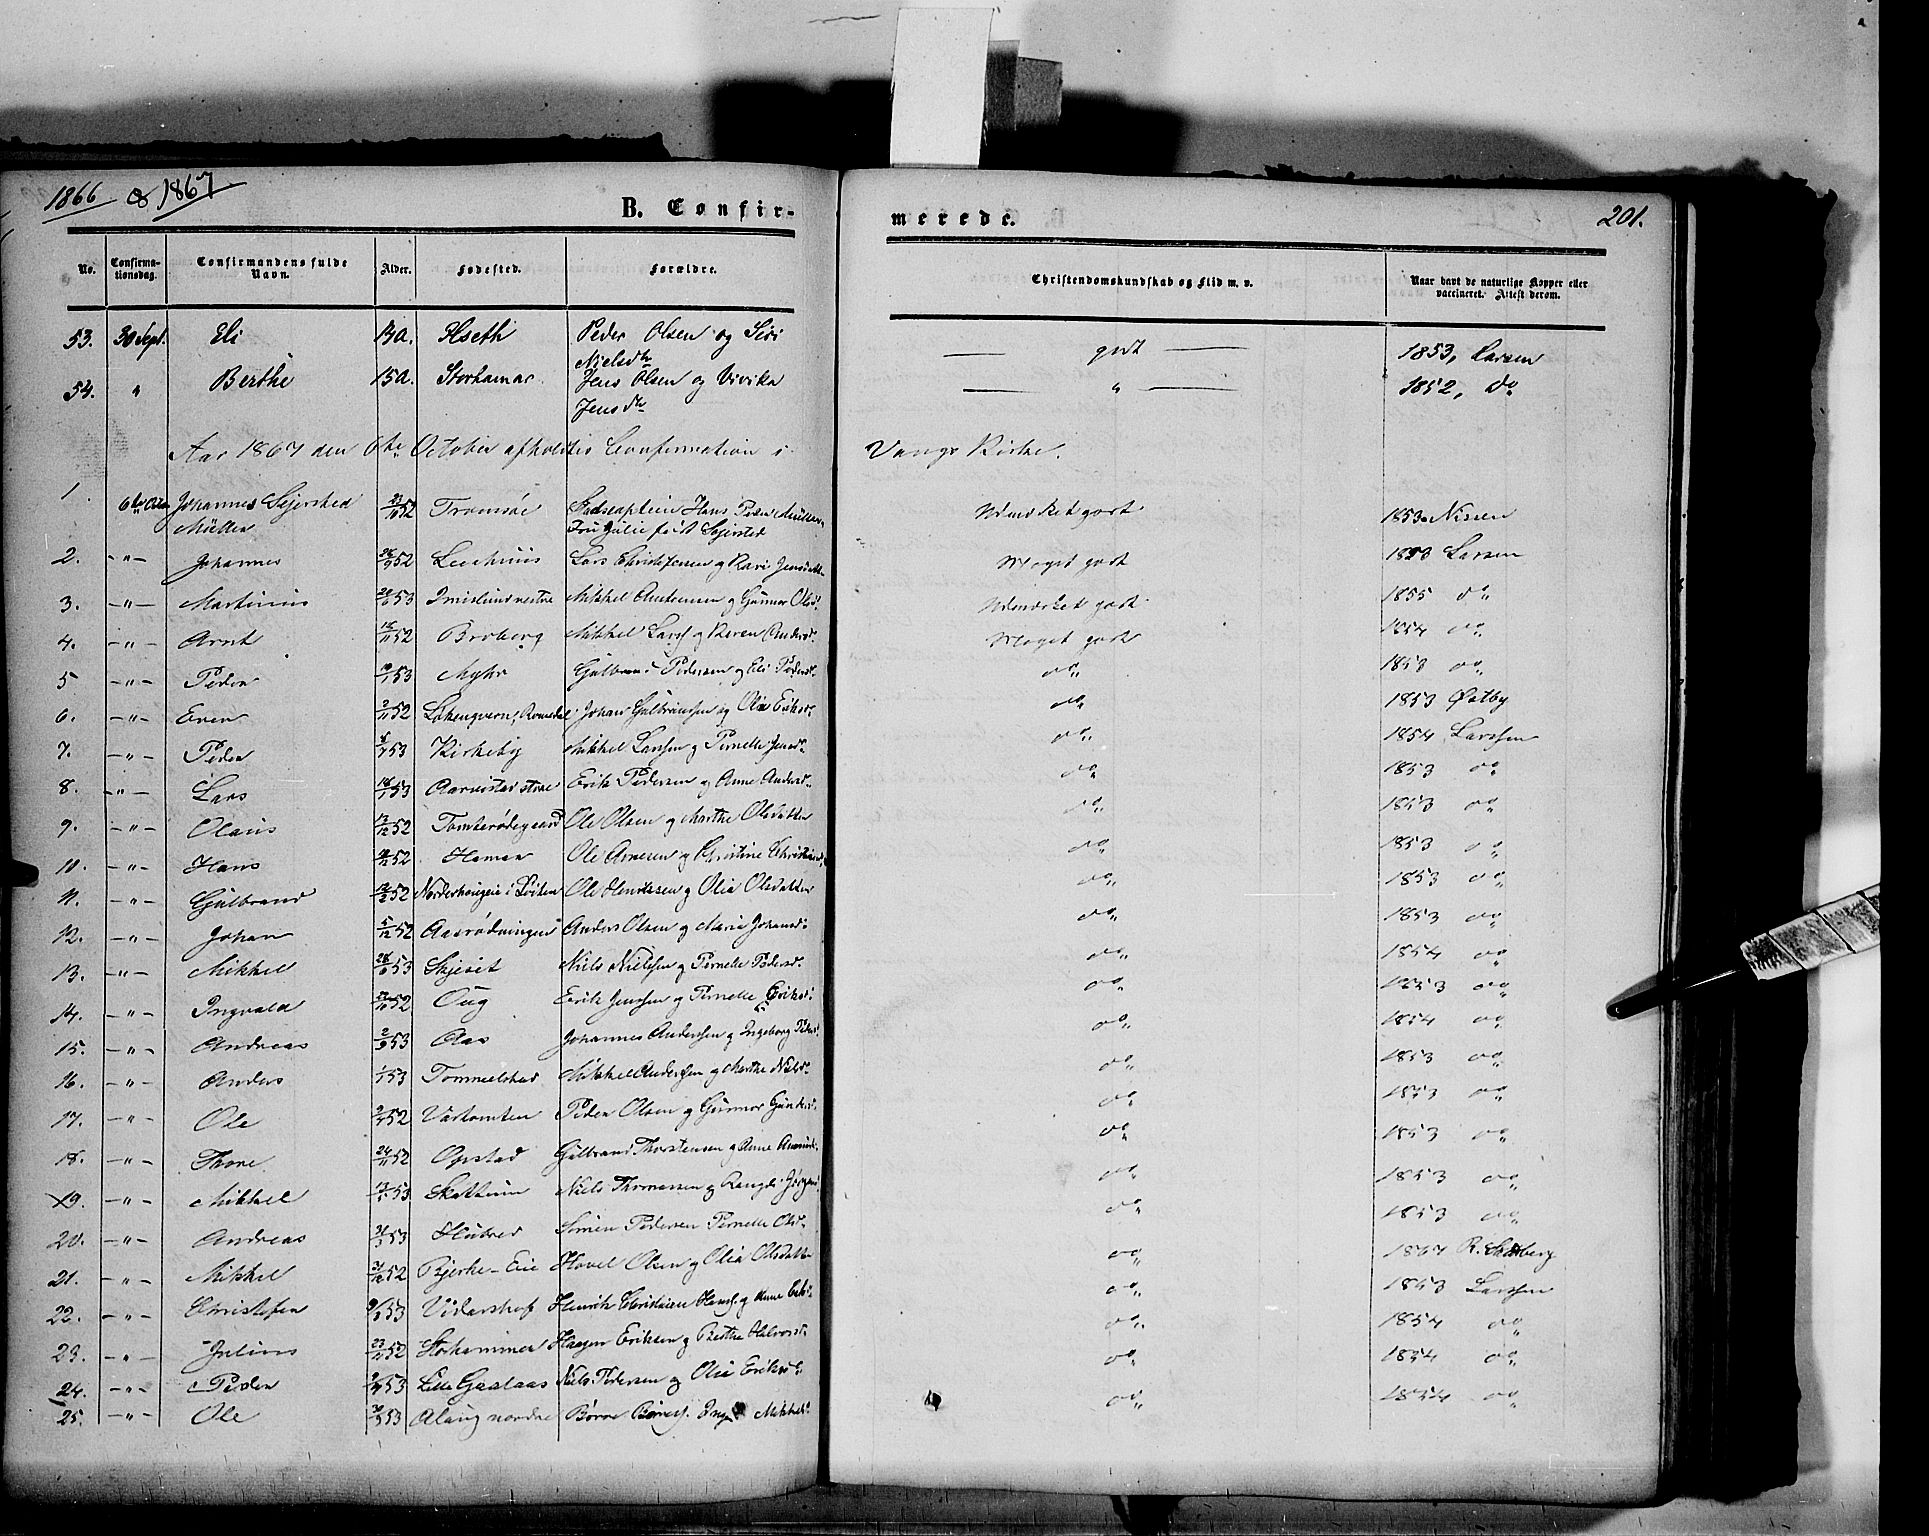 1866 & 1867
B. Confir-
merede.
201.
No.
Confirma-
tionsdag.
Confirmandens fulde
Navn.
Alder.
Fødested.
Forældre.
Christendomskundskab og Flid m. v.
Naar havt de naturlige Kopper eller
vaccineret. Attest derom.
53. 30 Sept. Eli Ilseth Peder Olsen og Siri Nielsdtr godt 1853, Larsen
54. " Berthe 15a. Storhamar Jens Olsen og Vivika Jensdtr " 1852, do
Aar 1867 den 6te October afholdtes Confirmation i Vangs Kirke.
1. 6te Octbr Johannes Sejersted Müller 52 Tromsøe Hans Peter Müller, Fru Julie født Sejersted Udmærket godt 1853 Nissen
2. -"- Johannes 52 Lars Christophersen og Kari Jensdatter Meget godt 1853 Larsen
3. -"- Martinus 53 Imislund vestre Mikkel Andersen og Gunnor Olsd. Udmærket godt 1855 do
4. -"- Arnt 52 Broberg Mikkel Larsf og Karen Andersd. Meget godt 1854 do
5 -"- Peder 53 Myhr Gulbrand Pedersen og Eli Pedersd. do 1853 do
6. -"- Even 2/11 52 Romedal Johan Gulbransen og Olia Eriksd. do 1853 Østby
7. -"- Peder 53 Kirkeby Mikkel Larssen og Pernelle Jensd. do 1854 Larssen
8. -"- Lars 53 Aarvistad store Erik Pedersen og Anne Andersd. do 1853 do
9. -"- Olaus 13/12 52 Tomterødegaard Ole Olsen og Marthe Olsdatter do 1853 do
10. -"- Hans 52 Hamar Ole Arnesen og Christine Christiansd. do 1853 do
11. -"- Gulbrand 52 i Løiten Ole Henriksen og Olia Olsdatter do 1853 do
12. -"- Johan 5/12 52 Anders Olsen og Maria Johansd. do 1853 do
13. -"- Mikkel 53 Skjeset Niels Nielsen og Pernelle Pedersd. do 1854 do
14. -"- Ingvald 52 Oug Erik Jenssen og Pernelle Eriksd. do 1853 do
15. -"- Andreas 53 Aas Johannes Anderssen og Ingeborg Pedersd. do 1854 do
16. -"- Anders 53 Tommelstad Mikkel Andersen og Marthe Nielsd. do 1853 do
17. -"- Ole 52 Peder Olsen og Gunnor do 1853 do
18. -"- Thore 24/11 52 Opstad Gulbrand Thorstensen og Anne do 1853 do
19. -"- Mikkel 53 Skattum Niels Thomassen og do 1853 do
20. -"- Andreas 53 Simen Pedersen Pernelle Olsd. do 1853 do
21. -"- Mikkel 31/12 52 Bjerke-Eie Hovel Olsen og Olia Olsdatter do 1867
22. -"- Christofer 53 Vidarshof Henrik Christian Hansf. og Anne do 1853 Larssen
23. -"- Julius 52 Storhammer Haagen Eriksen og Berthe Halvorsd. do 1854 do
24. -"- Peder 53 Lille Gaalaas Niels Pedersen og Olia Eriksd. do 1854 do
25. -"- Ole 53 Alaug nordre Børre Børresf. Mikkelsd. do 1854 do